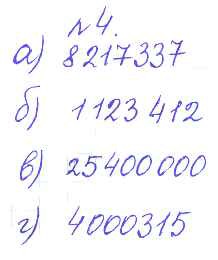 №4.
а) 8217337
б) 1123 412
в) 25400 000
г) 4000315